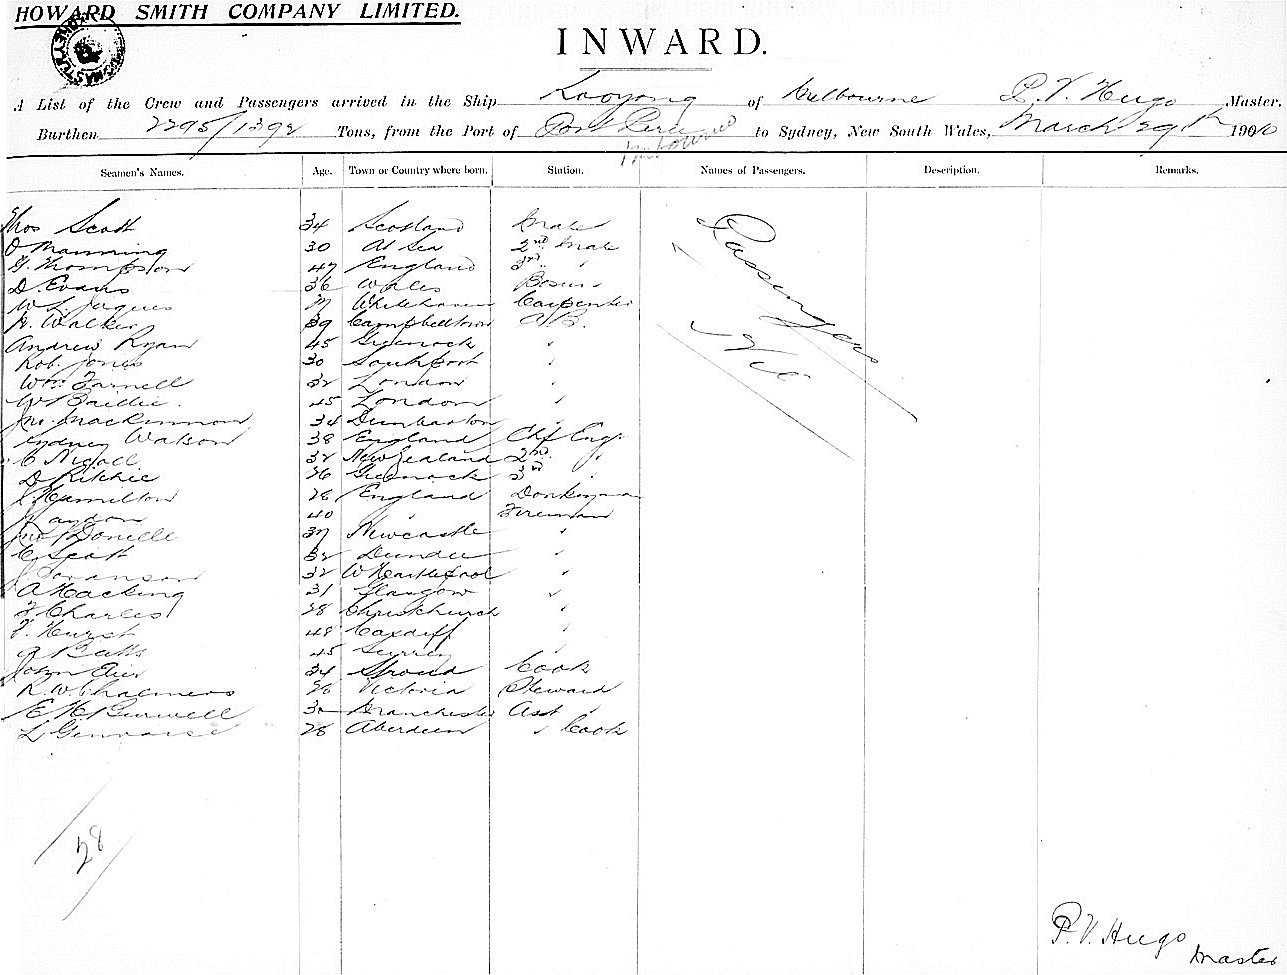 HOWARD SMITH COMPANY LIMITED.
INWARD.
A List of the Crew and Passengers arrived in the Ship Kooyong of Melbourne P. V. Hugo Master.
Burthen 2295/1392 Tons, from the Port of Port Pirie to Sydney, New South Wales, March 29th 190
Seamen's Names. Age. Town or Country where born. Station. Names of Passengers. Description. Remarks.
Thos Scott 34 Scotland Mate
O Manning 30 At Sea 2nd Mate
G. Thompson 47 England 3rd "
D. Evans 36 Wales Bosun
W L. Jaques Whitehaven Carpenter
Walker 39 Campbelltown A B.
Andrew Ryan 45 Greenock "
Rob. Jones 30 Southport "
Wm Farnell 32 London "
W Baillie. 45 London "
Jno. MacKinnon 34 Dumbarton "
Sydney Watson 38 England Chf Engr
C Nicoll 32 New Zealand 2nd "
D Ritchie 26 Greenock 3rd "
Hamilton 28 England Donkeyman
40 Fireman
Jno 37 Newcastle "
C Scott 32 Dundee "
Swanson 32 W Hartlepool "
A Hacking 31 Glasgow "
F Charles 28 Christchurch "
F. Hurst 48 Cardiff "
A Batts 45 Surrey "
John 34 Stroud Cook
R. W. Chalmers 26 Victoria Steward
E H Burwell 30 Manchester Asst "
L 28 Aberdeen " Cook
Passengers
Nil
28
P. V. Hugo
Master